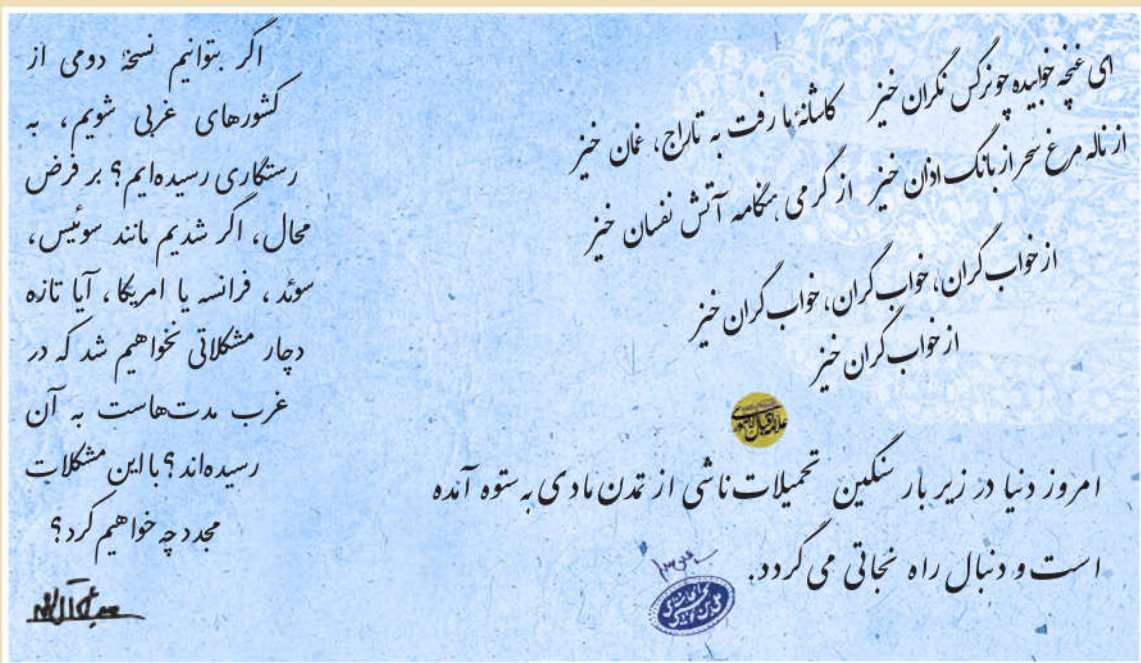 ای غنچهٔ خوابیده چو نرگس نگران خیز کاشانهٔ ما رفت به تاراج، غمان خیز
از ناله مرغ سحر از بانگ اذان خیز از گرمی هنگامه آتش نفسان خیز
از خواب گران، خواب گران، خواب گران خیز
از خواب گران خیز
علامه اقبال لاهوری
امروز دنیا در زیر بار سنگین تحمیلات ناشی از تمدن مادی به ستوه آمده
است و دنبال راه نجاتی می گردد.
اگر بتوانیم نسخهٔ دومی از
کشورهای غربی شویم، به
رستگاری رسیده‌ایم؟ بر فرض
محال، اگر شدیم مانند سوئیس،
سوئد، فرانسه یا امریکا، آیا تازه
دچار مشکلاتی نخواهیم شد که در
غرب مدت‌هاست به آن
رسیده‌اند؟ با این مشکلات
مجدد چه خواهیم کرد؟